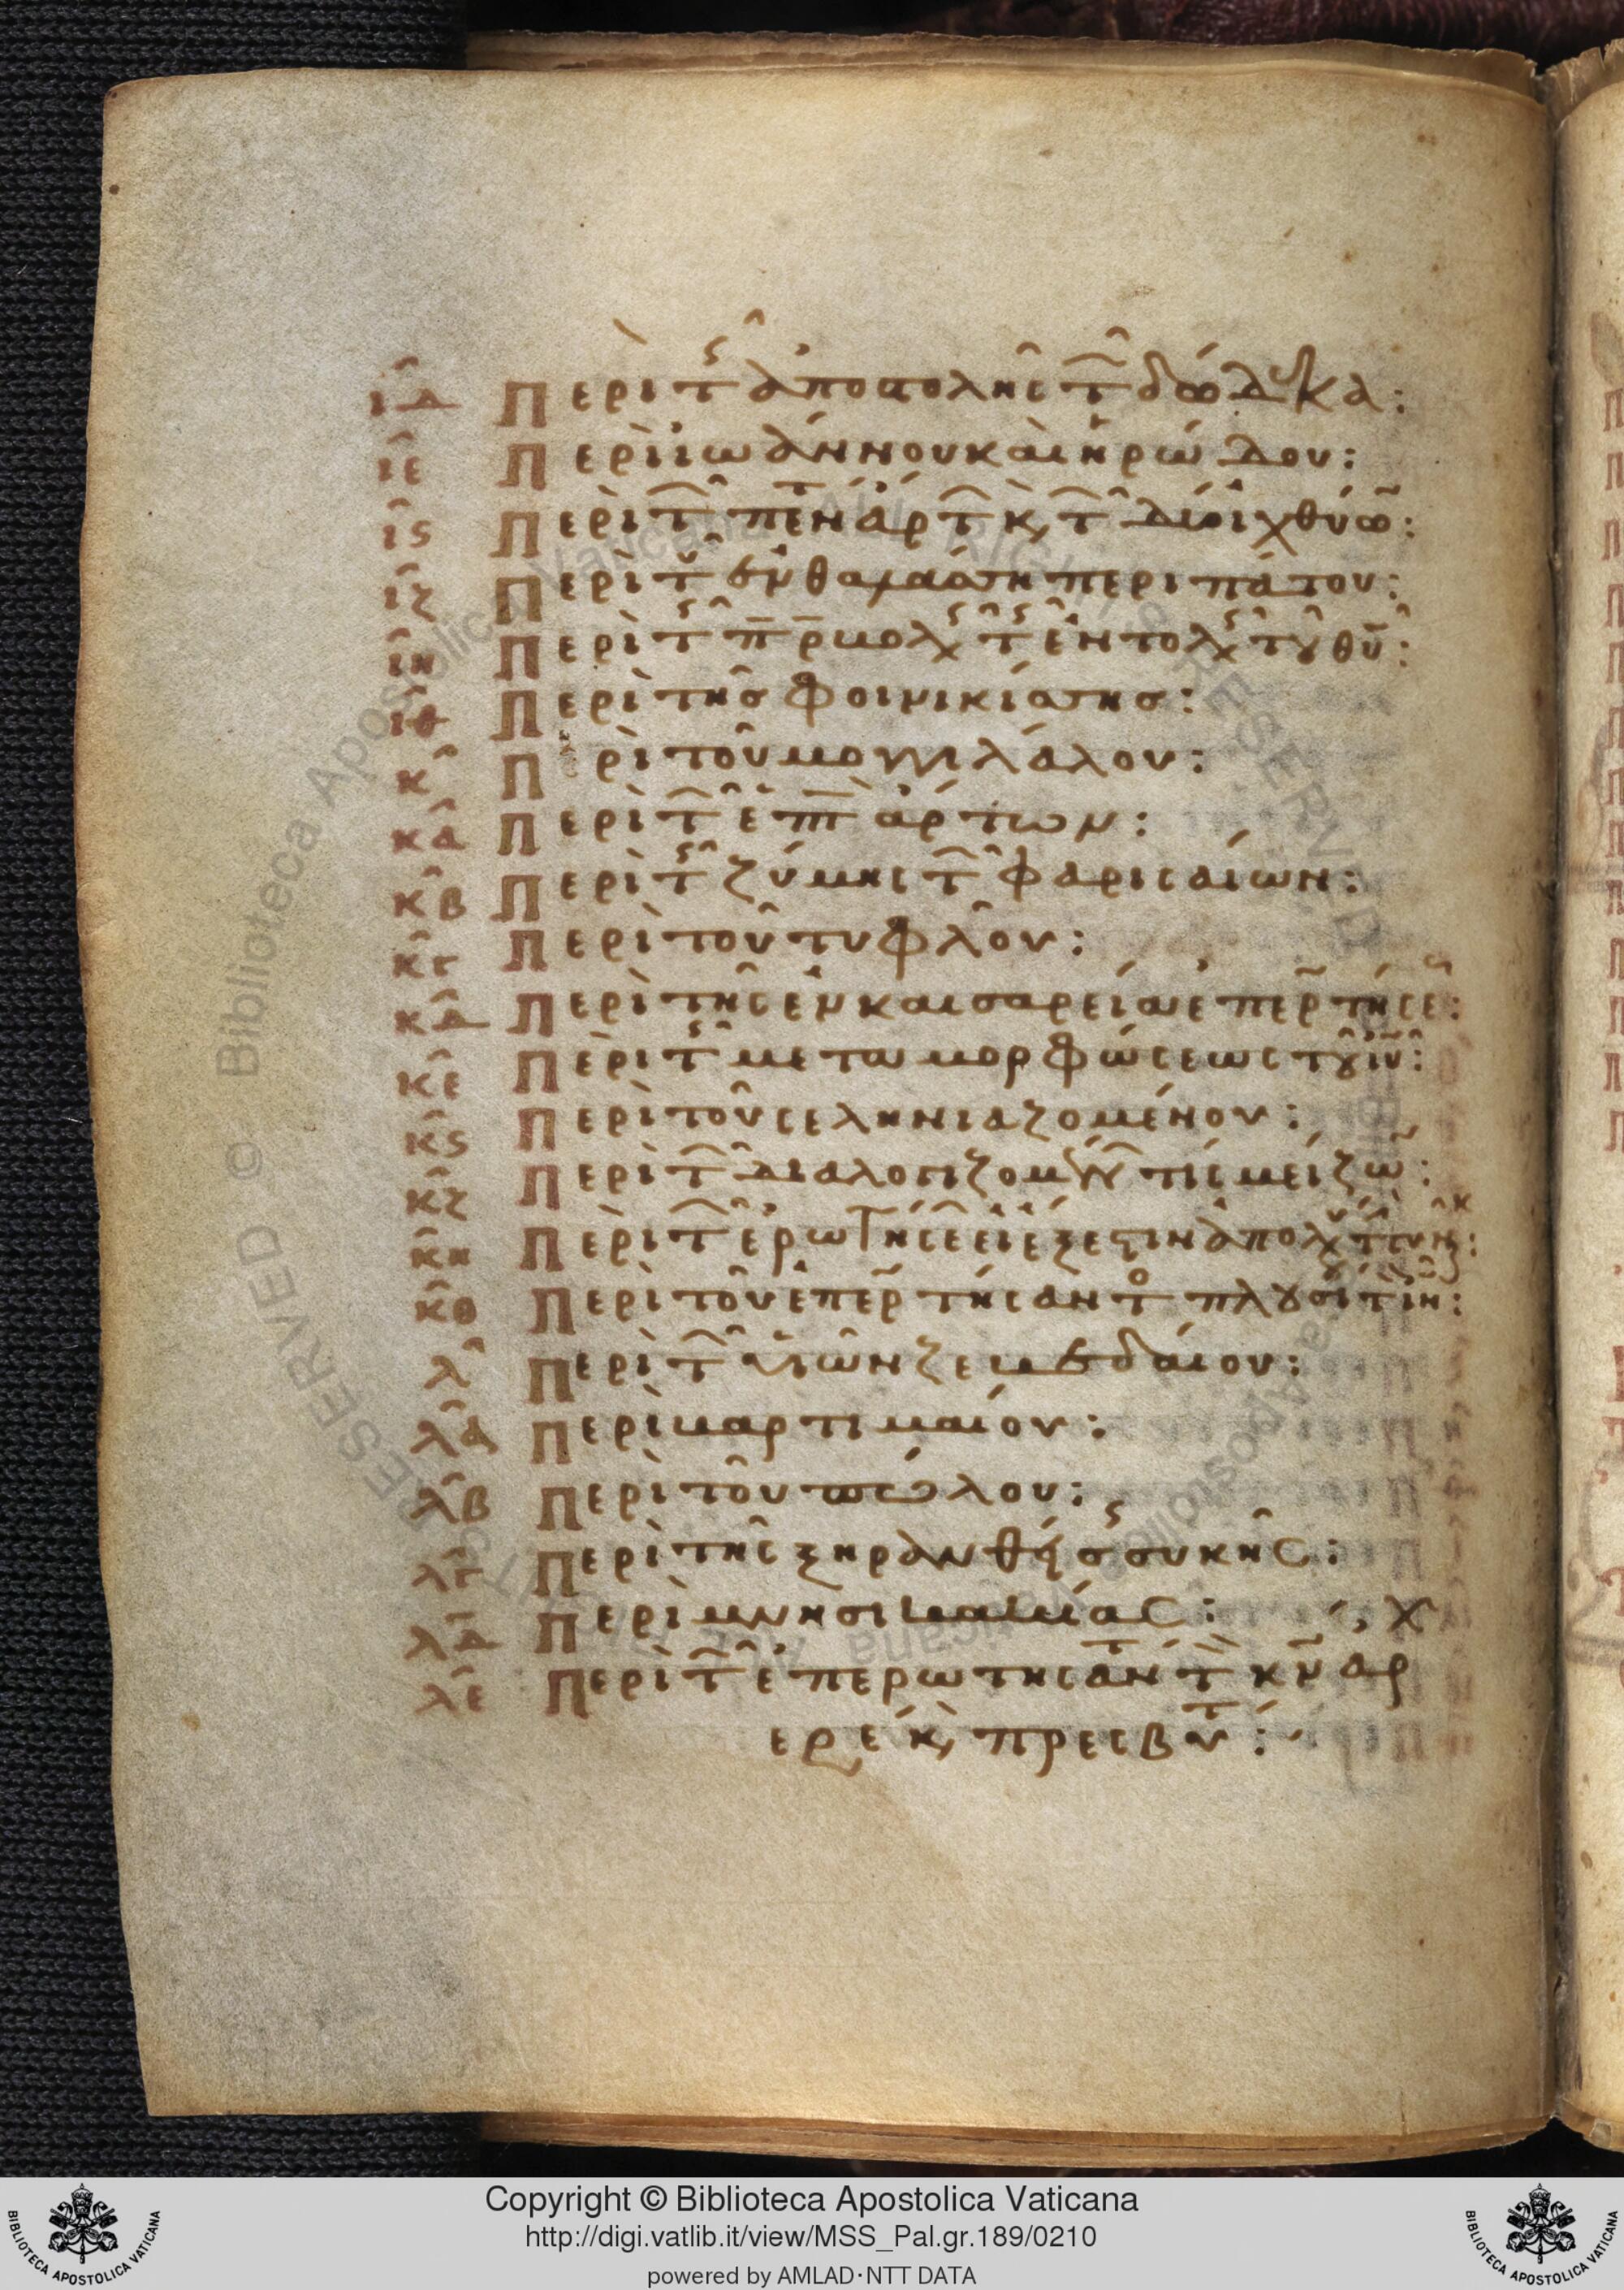 ιδ Περὶ τῆς ἀποστολῆς τῶν δώδεκα:
ιε Περὶ ἰωάννου καὶ ἡρώδου:
ις Περὶ τῶν πεντ ἄρτ κ, τῶν δύο ἰχθύω:
ιζ Περὶ τοῦ ἐν θαλάσση περιπάτου:
ιη Περὶ τῆς π ρ τῆς ἐντολῆς τοῦ θυ:
ιθ Περὶ τῆσ φοινικίσσησ:
κ Περὶ τοῦ μογγιλάλου:
κα Περὶ τῶν ἑπτὰ ἄρτων:
κβ Περὶ τῆς ζύμης τῶν φαρισαίων:
κγ Περὶ τοῦ τυφλοῦ:
κδ Περὶ τῆς ἐν καισαρεία ἐπερ τήσε:
κε Περὶ τῆς μεταμορφώσεως τοῦ ιυ:
κς Περὶ τοῦ σεληνιαζομένου:
κζ Περὶ τῶν διαλογιζομέν τίς μείζω:
κη Περὶ τῶν ἐρωτησ εἰ ἔξεστιν ἀπολ τ γυν:
κθ Περὶ τοῦ ἐπερ τήσαντο πλουσί τ ιν:
λ Περὶ τῶν υἱῶν ζεβεδαίου:
λα Περὶ βαρτιμαίου:
λβ Περὶ τοῦ πώλου:
λγ Περὶ τῆς ξηρανθείσ συκῆς:
λδ Περὶ μνησικακίας:
λε Περὶ τῶν ἐπερωτησάντ τὸν κν ἀρχ
ερε κ, πρεσβυτ:
Copyright © Biblioteca Apostolica Vaticana
http://digi.vatlib.it/view/MSS_Pal.gr.189/0210
powered by AMLAD·NTT DATA